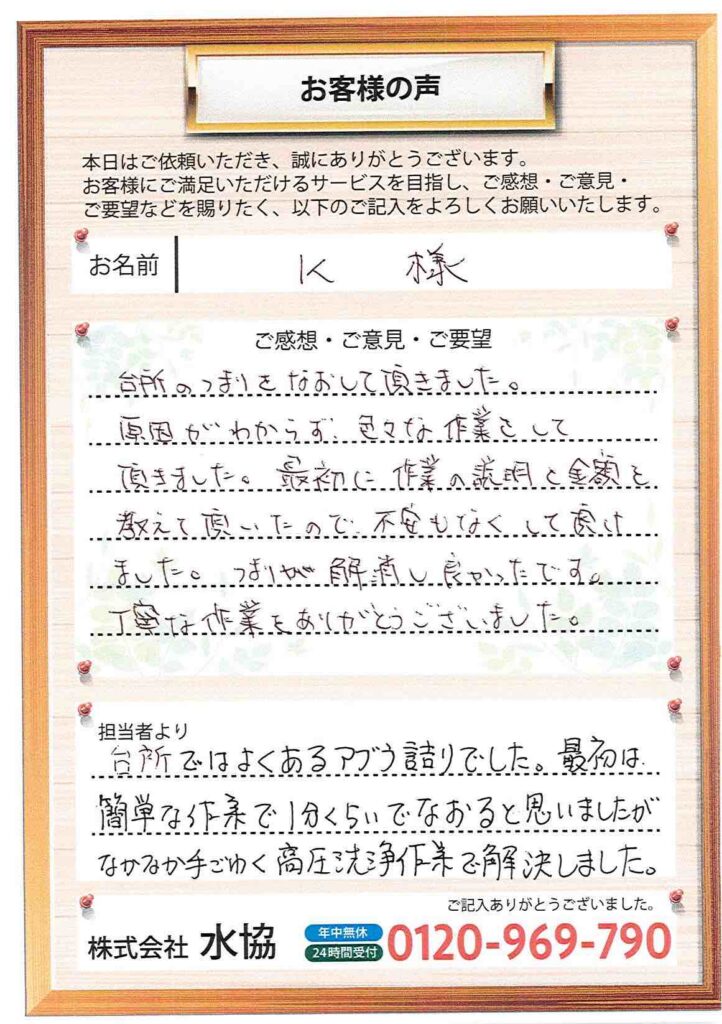 お客様の声
本日はご依頼いただき、誠にありがとうございます。
お客様にご満足いただけるサービスを目指し、ご感想・ご意見・
ご要望などを賜りたく、以下のご記入をよろしくお願いいたします。
お名前 K 様
ご感想・ご意見・ご要望
台所のつまりをなおして頂きました。
原因がわからず、色々な作業をして
頂きました。最初に作業の説明と金額を
教えて頂いたので、不安もなくして頂け
ました。つまりが解消し良かったです。
丁寧な作業をありがとうございました。
担当者より
台所ではよくあるアブラ詰りでした。最初は
簡単な作業で1分くらいでなおると思いましたが
なかなか手ごわく高圧洗浄作業で解決しました。
ご記入ありがとうございました。
株式会社 水協 年中無休 24時間受付 0120-969-790